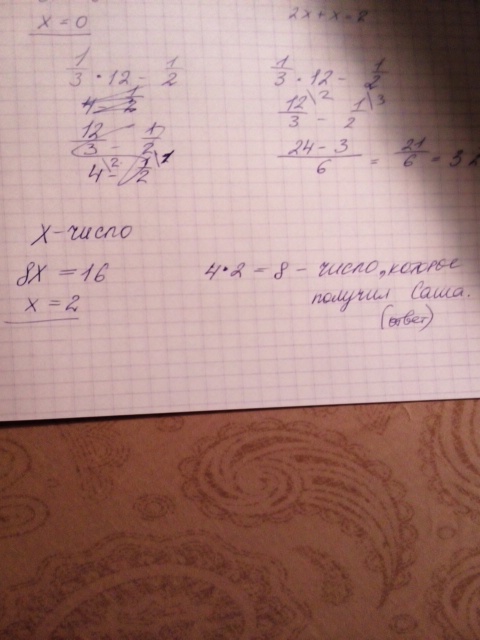 x = 0
2x + x = 2
1/3 · 12 - 1/2
12/3 - 1/2
4 - 1/2
1/3 · 12 - 1/2
12/3 - 1/2
(24 - 3)/6 = 21/6 = 3
X - число
8X = 16
x = 2
4 · 2 = 8 - число, которое
получил Саша.
(ответ)